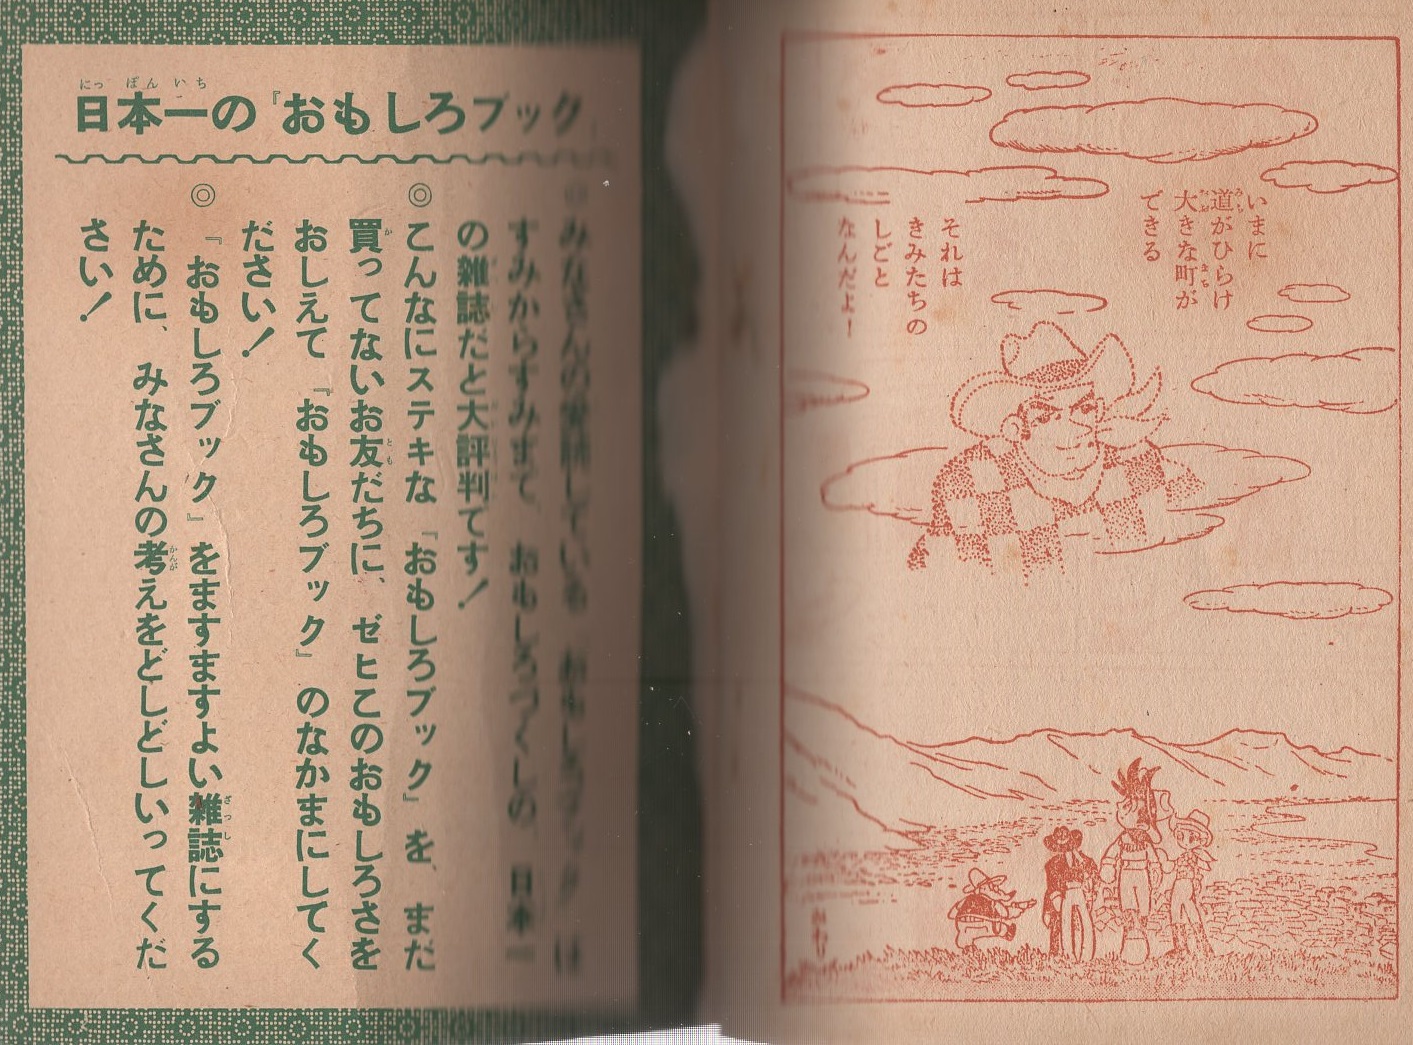 いまに
道がひらけ
大きな町が
できる
それは
きみたちの
しごと
なんだよ!
おわり
日本一の『おもしろブック
◎みなさんの愛読している『おもしろブック』は
すみからすみまで、おもしろづくしの、日本一
の雑誌だと大評判です!
◎こんなにステキな『おもしろブック』を、まだ
買ってないお友だちに、ゼヒこのおもしろさを
おしえて『おもしろブック』のなかまにしてく
ださい!
◎『おもしろブック』をますますよい雑誌にする
ために、みなさんの考えをどしどしいってくだ
さい!